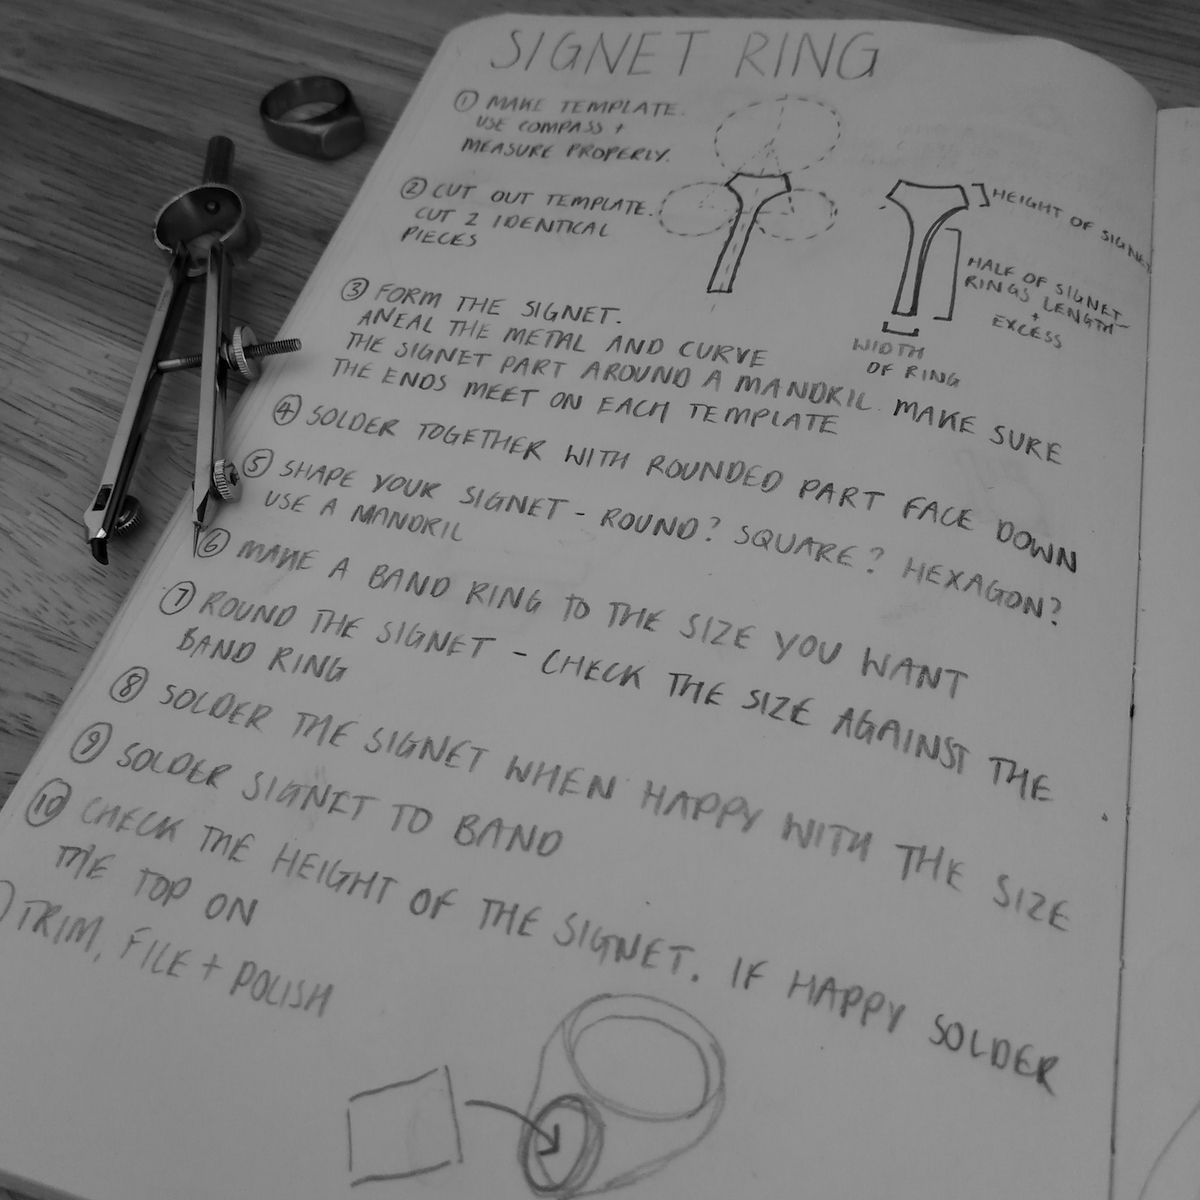 SIGNET RING
① MAKE TEMPLATE.
USE COMPASS +
MEASURE PROPERLY.
② CUT OUT TEMPLATE.
CUT 2 IDENTICAL
PIECES
HEIGHT OF SIGNET
HALF OF SIGNET
RING'S LENGTH
+
EXCESS
WIDTH
OF RING
③ FORM THE SIGNET.
ANEAL THE METAL AND CURVE
THE SIGNET PART AROUND A MANDRIL. MAKE SURE
THE ENDS MEET ON EACH TEMPLATE
④ SOLDER TOGETHER WITH ROUNDED PART FACE DOWN
⑤ SHAPE YOUR SIGNET - ROUND? SQUARE? HEXAGON?
USE A MANDRIL
⑥ MAKE A BAND RING TO THE SIZE YOU WANT
⑦ ROUND THE SIGNET - CHECK THE SIZE AGAINST THE
BAND RING
⑧ SOLDER THE SIGNET WHEN HAPPY WITH THE SIZE
⑨ SOLDER SIGNET TO BAND
⑩ CHECK THE HEIGHT OF THE SIGNET. IF HAPPY SOLDER
THE TOP ON
TRIM, FILE + POLISH